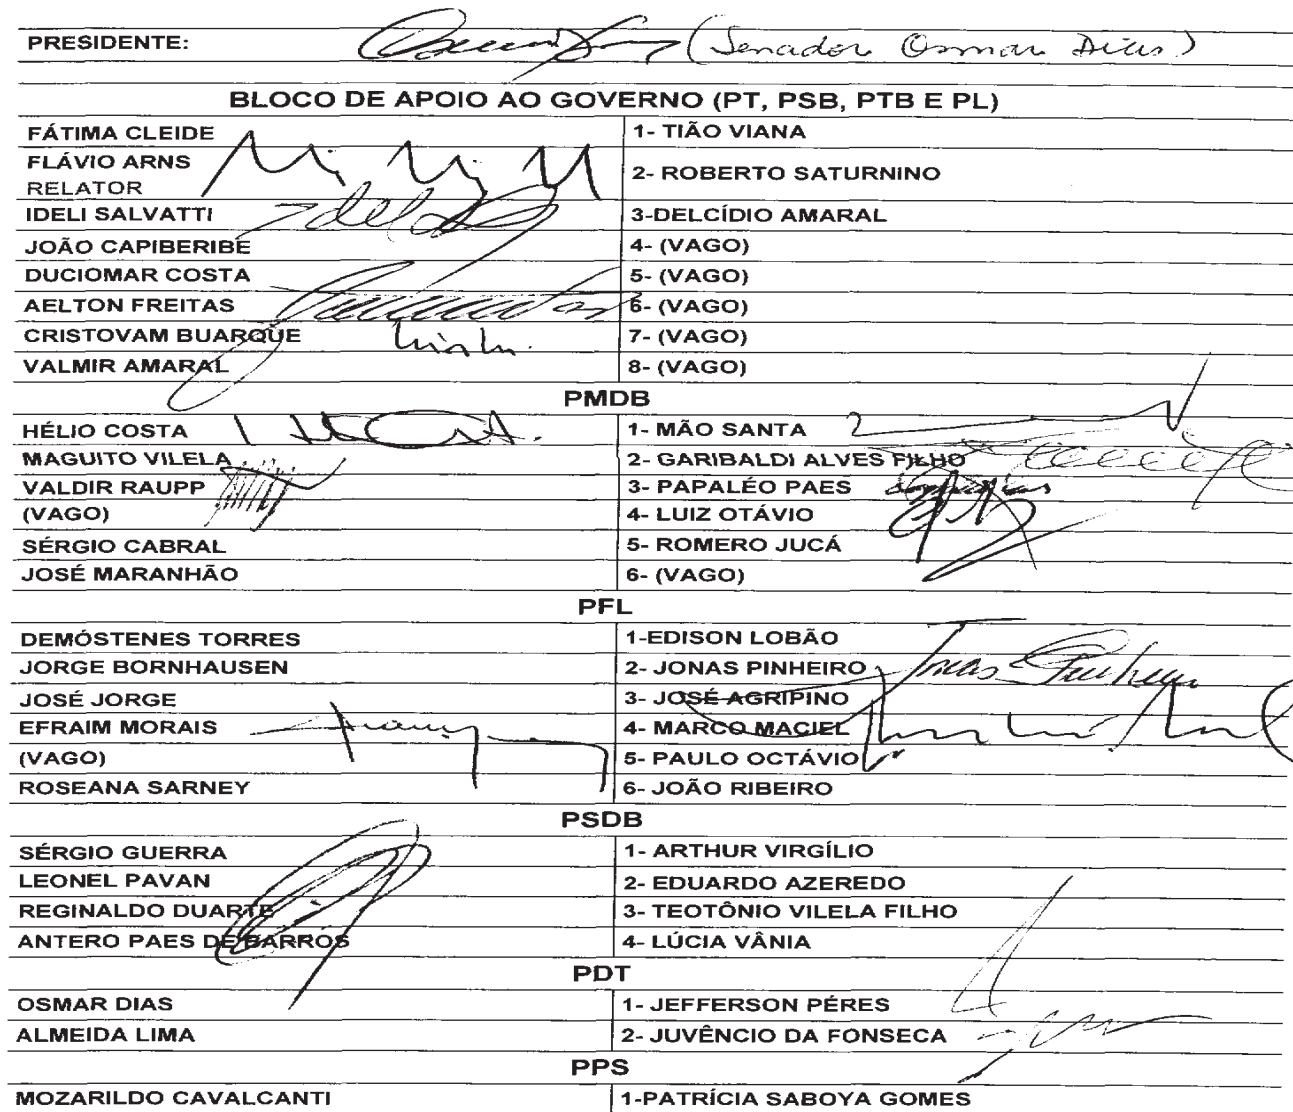 PRESIDENTE: (Senador Osmar Dias)
BLOCO DE APOIO AO GOVERNO (PT, PSB, PTB E PL)
FÁTIMA CLEIDE 1- TIÃO VIANA
FLÁVIO ARNS
RELATOR 2- ROBERTO SATURNINO
IDELI SALVATTI 3-DELCÍDIO AMARAL
JOÃO CAPIBERIBE 4- (VAGO)
DUCIOMAR COSTA 5- (VAGO)
AELTON FREITAS 6- (VAGO)
CRISTOVAM BUARQUE 7- (VAGO)
VALMIR AMARAL 8- (VAGO)
PMDB
HÉLIO COSTA 1- MÃO SANTA
MAGUITO VILELA 2- GARIBALDI ALVES FILHO
VALDIR RAUPP 3- PAPALÉO PAES
(VAGO) 4- LUIZ OTÁVIO
SÉRGIO CABRAL 5- ROMERO JUCÁ
JOSÉ MARANHÃO 6- (VAGO)
PFL
DEMÓSTENES TORRES 1-EDISON LOBÃO
JORGE BORNHAUSEN 2- JONAS PINHEIRO Jonas Pinheiro
JOSÉ JORGE 3- JOSÉ AGRIPINO
EFRAIM MORAIS 4- MARCO MACIEL
(VAGO) 5- PAULO OCTÁVIO
ROSEANA SARNEY 6- JOÃO RIBEIRO
PSDB
SÉRGIO GUERRA 1- ARTHUR VIRGÍLIO
LEONEL PAVAN 2- EDUARDO AZEREDO
REGINALDO DUARTE 3- TEOTÔNIO VILELA FILHO
ANTERO PAES DE BARROS 4- LÚCIA VÂNIA
PDT
OSMAR DIAS 1- JEFFERSON PÉRES
ALMEIDA LIMA 2- JUVÊNCIO DA FONSECA
PPS
MOZARILDO CAVALCANTI 1-PATRÍCIA SABOYA GOMES